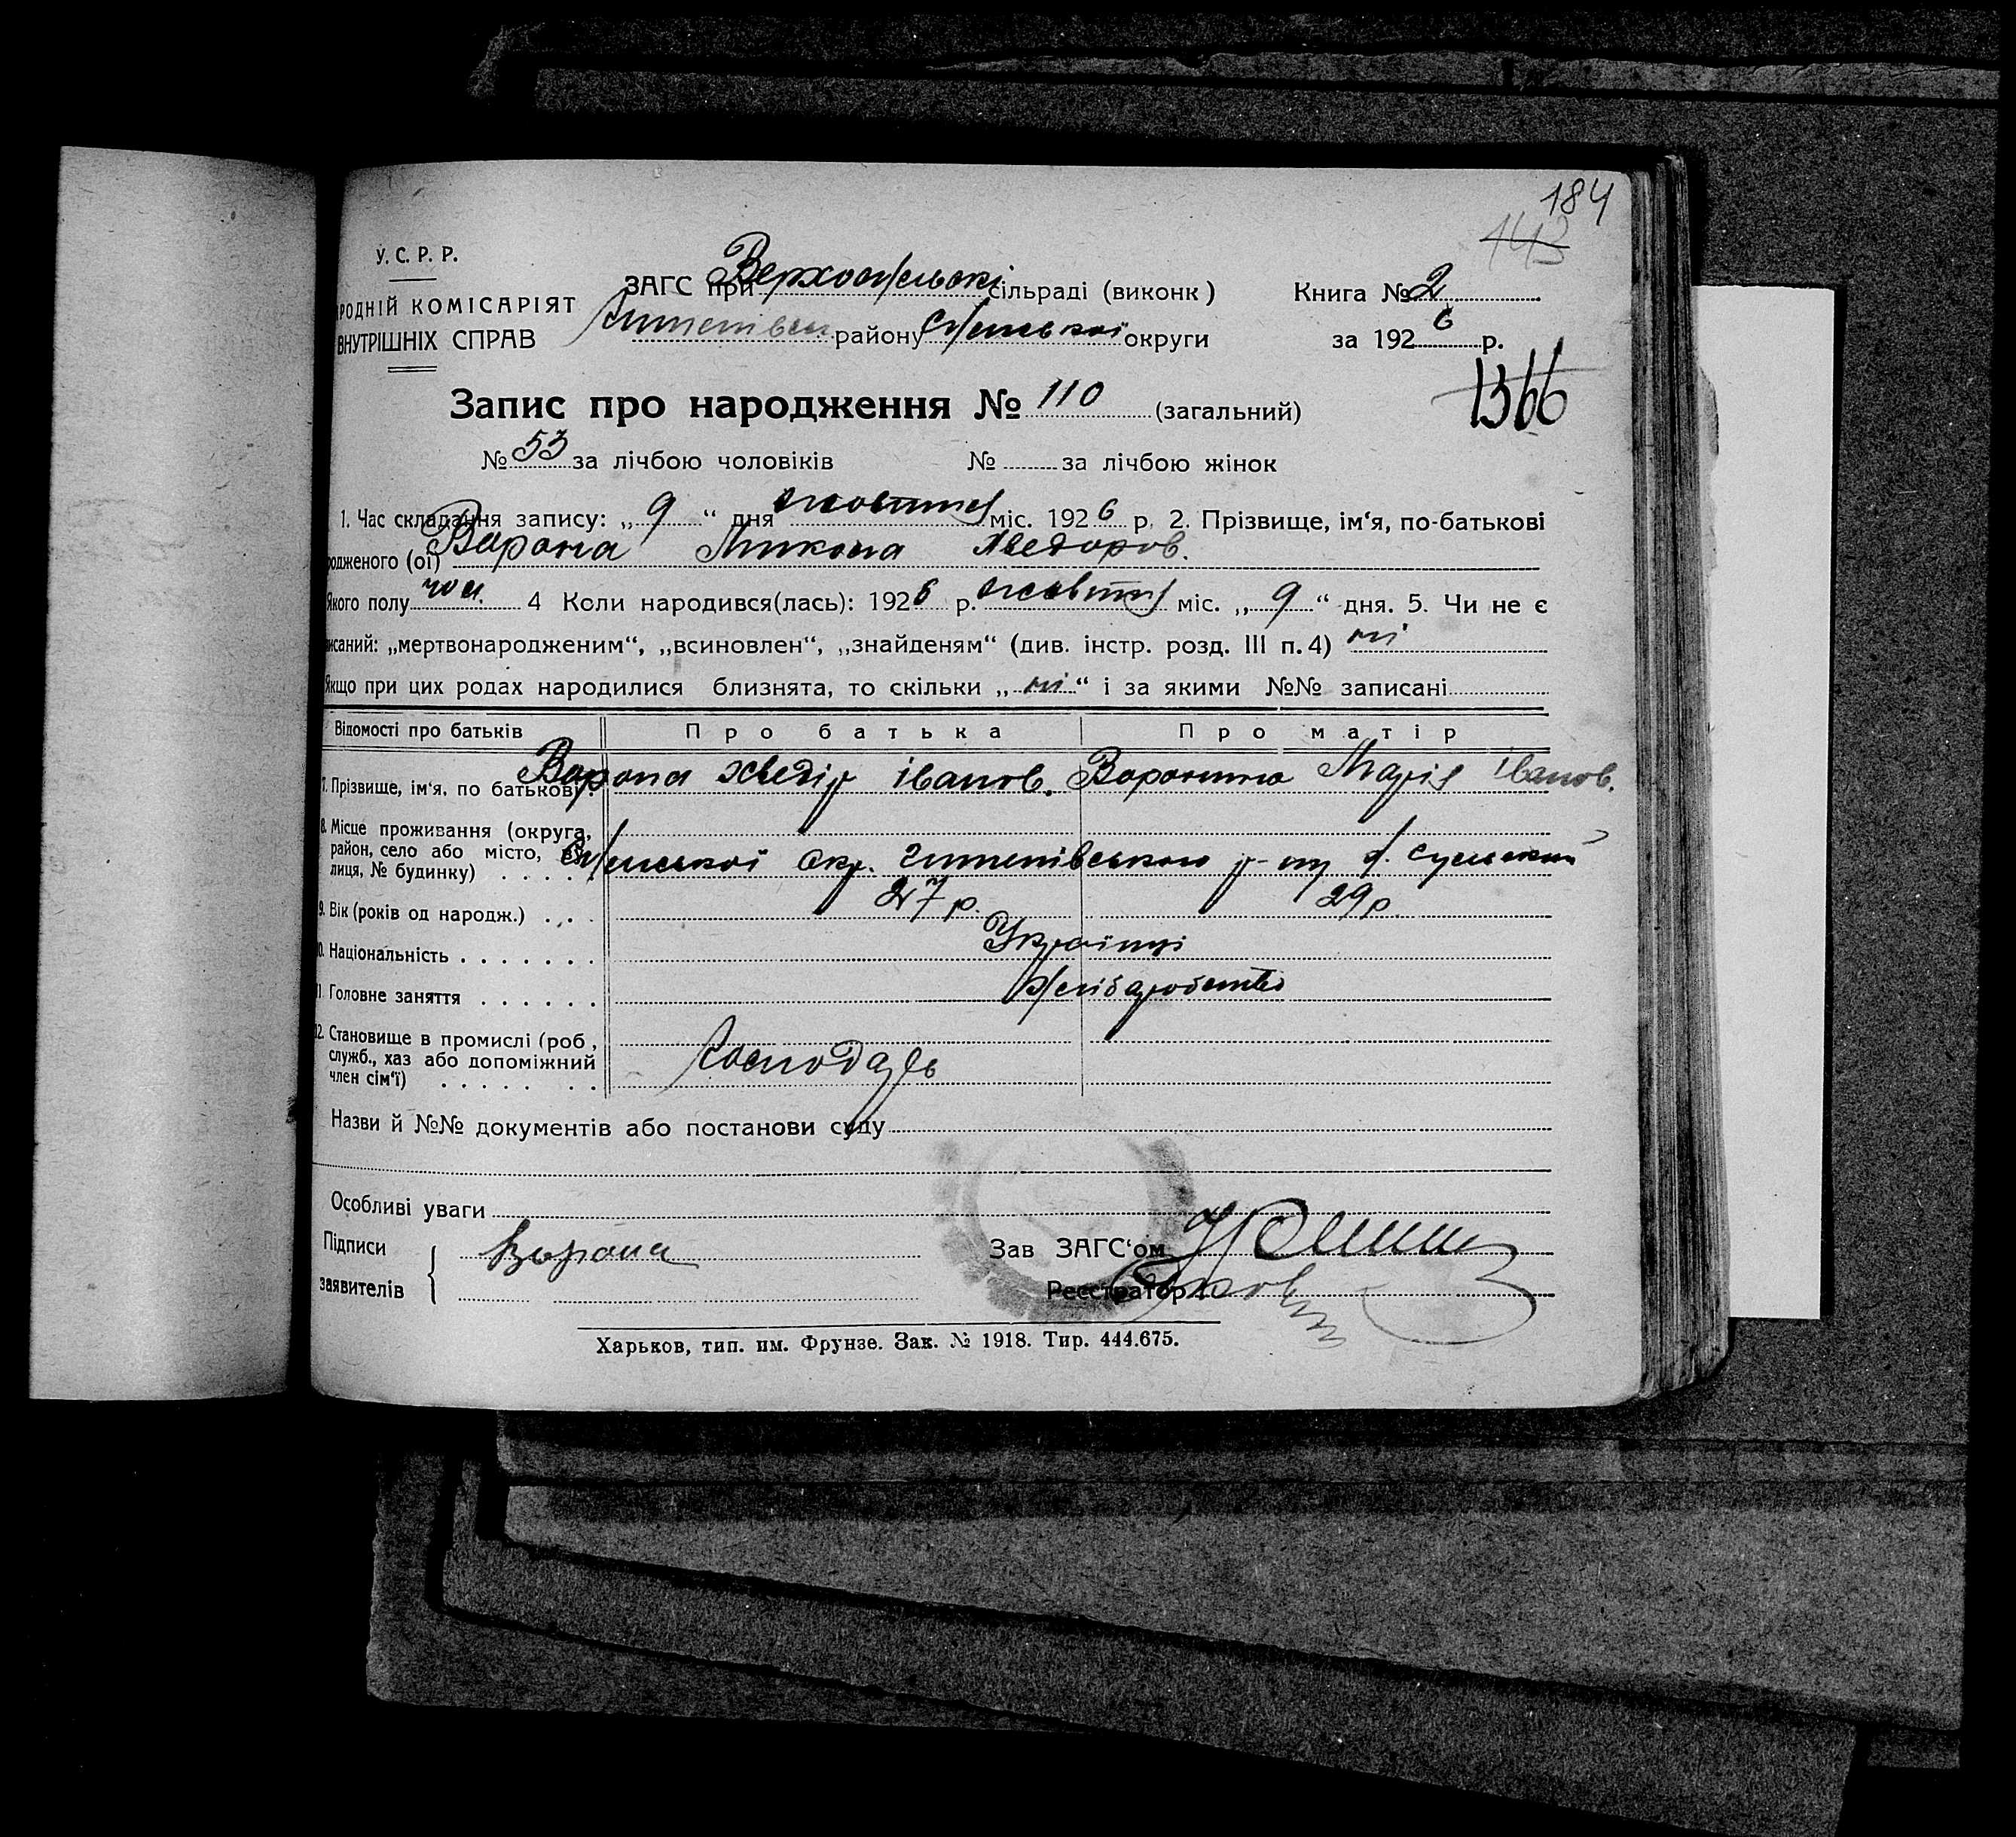 184
143
У. С. Р. Р.
РОДНІЙ КОМІСАРІЯТ
ВНУТРІШНІХ СПРАВ
ЗАГС при Верхосульскі сільраді (виконк)
району Сумської округи
Книга № 2
за 1926 р.
1366
Запис про народження № 110 (загальний)
№ 53 за лічбою чоловіків № за лічбою жінок
1. Час складання запису: „ 9 “ дня жовтня міс. 1926 р. 2. Прізвище, ім‘я, по-батькові
родженого (ої) Ворона Микола Хведоров.
Якого полу чол. 4 Коли народився(лась): 1926 р. жовтня міс. „ 9 “ дня. 5. Чи не є
исаний: „мертвонародженим“, „всиновлен“, „знайденям“ (див. інстр. розд. III п. 4) ні
Якщо при цих родах народилися близнята, то скільки „ ні “ і за якими №№ записані
Відомості про батьків Про батька Про матір
7. Прізвище, ім‘я, по батькові Ворона Хведір Іванов. Воронина Марія Іванов.
8. Місце проживання (округа,
район, село або місто, ву-
лиця, № будинку) Сумської Окр. р-ну
9. Вік (років од народж.) 27 р. 29 р.
10. Національність Українці
11. Головне заняття Хліборобство
12. Становище в промислі (роб,
служб., хаз або допоміжний
член сім‘ї) Господарь
Назви й №№ документів або постанови суду
Особливі уваги
Підписи
заявителів Ворона
Зав ЗАГС‘ом
Реєстратор
Харьков, тип. им. Фрунзе. Зак. № 1918. Тир. 444.675.